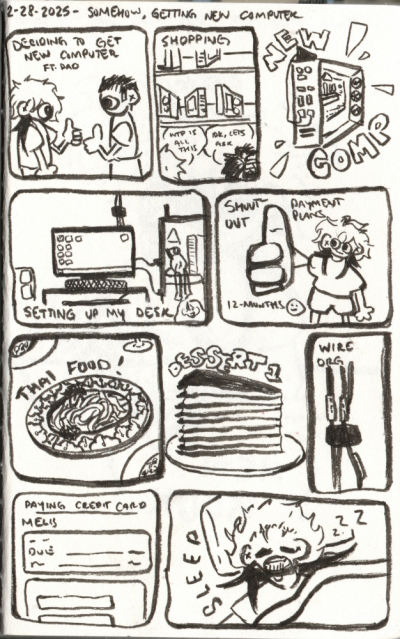 2-28-2025- SOMEHOW, GETTING NEW COMPUTER
DECIDING TO GET
NEW COMPUTER
FT. DAD
SHOPPING
WTF IS
ALL
THIS
IDK, LETS
ASK
NEW
COMP
SETTING UP MY DESK
SHOUT
OUT
PAYMENT
PLANS
12-MONTHS
THAI FOOD!
DESSERT
WIRE
ORG
PAYING CREDIT CARD
DUE
SLEEP
Z Z Z